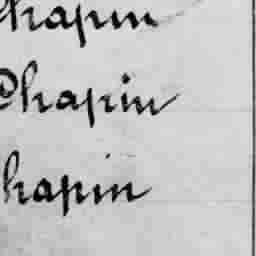 Chapin
Chapin
hapin